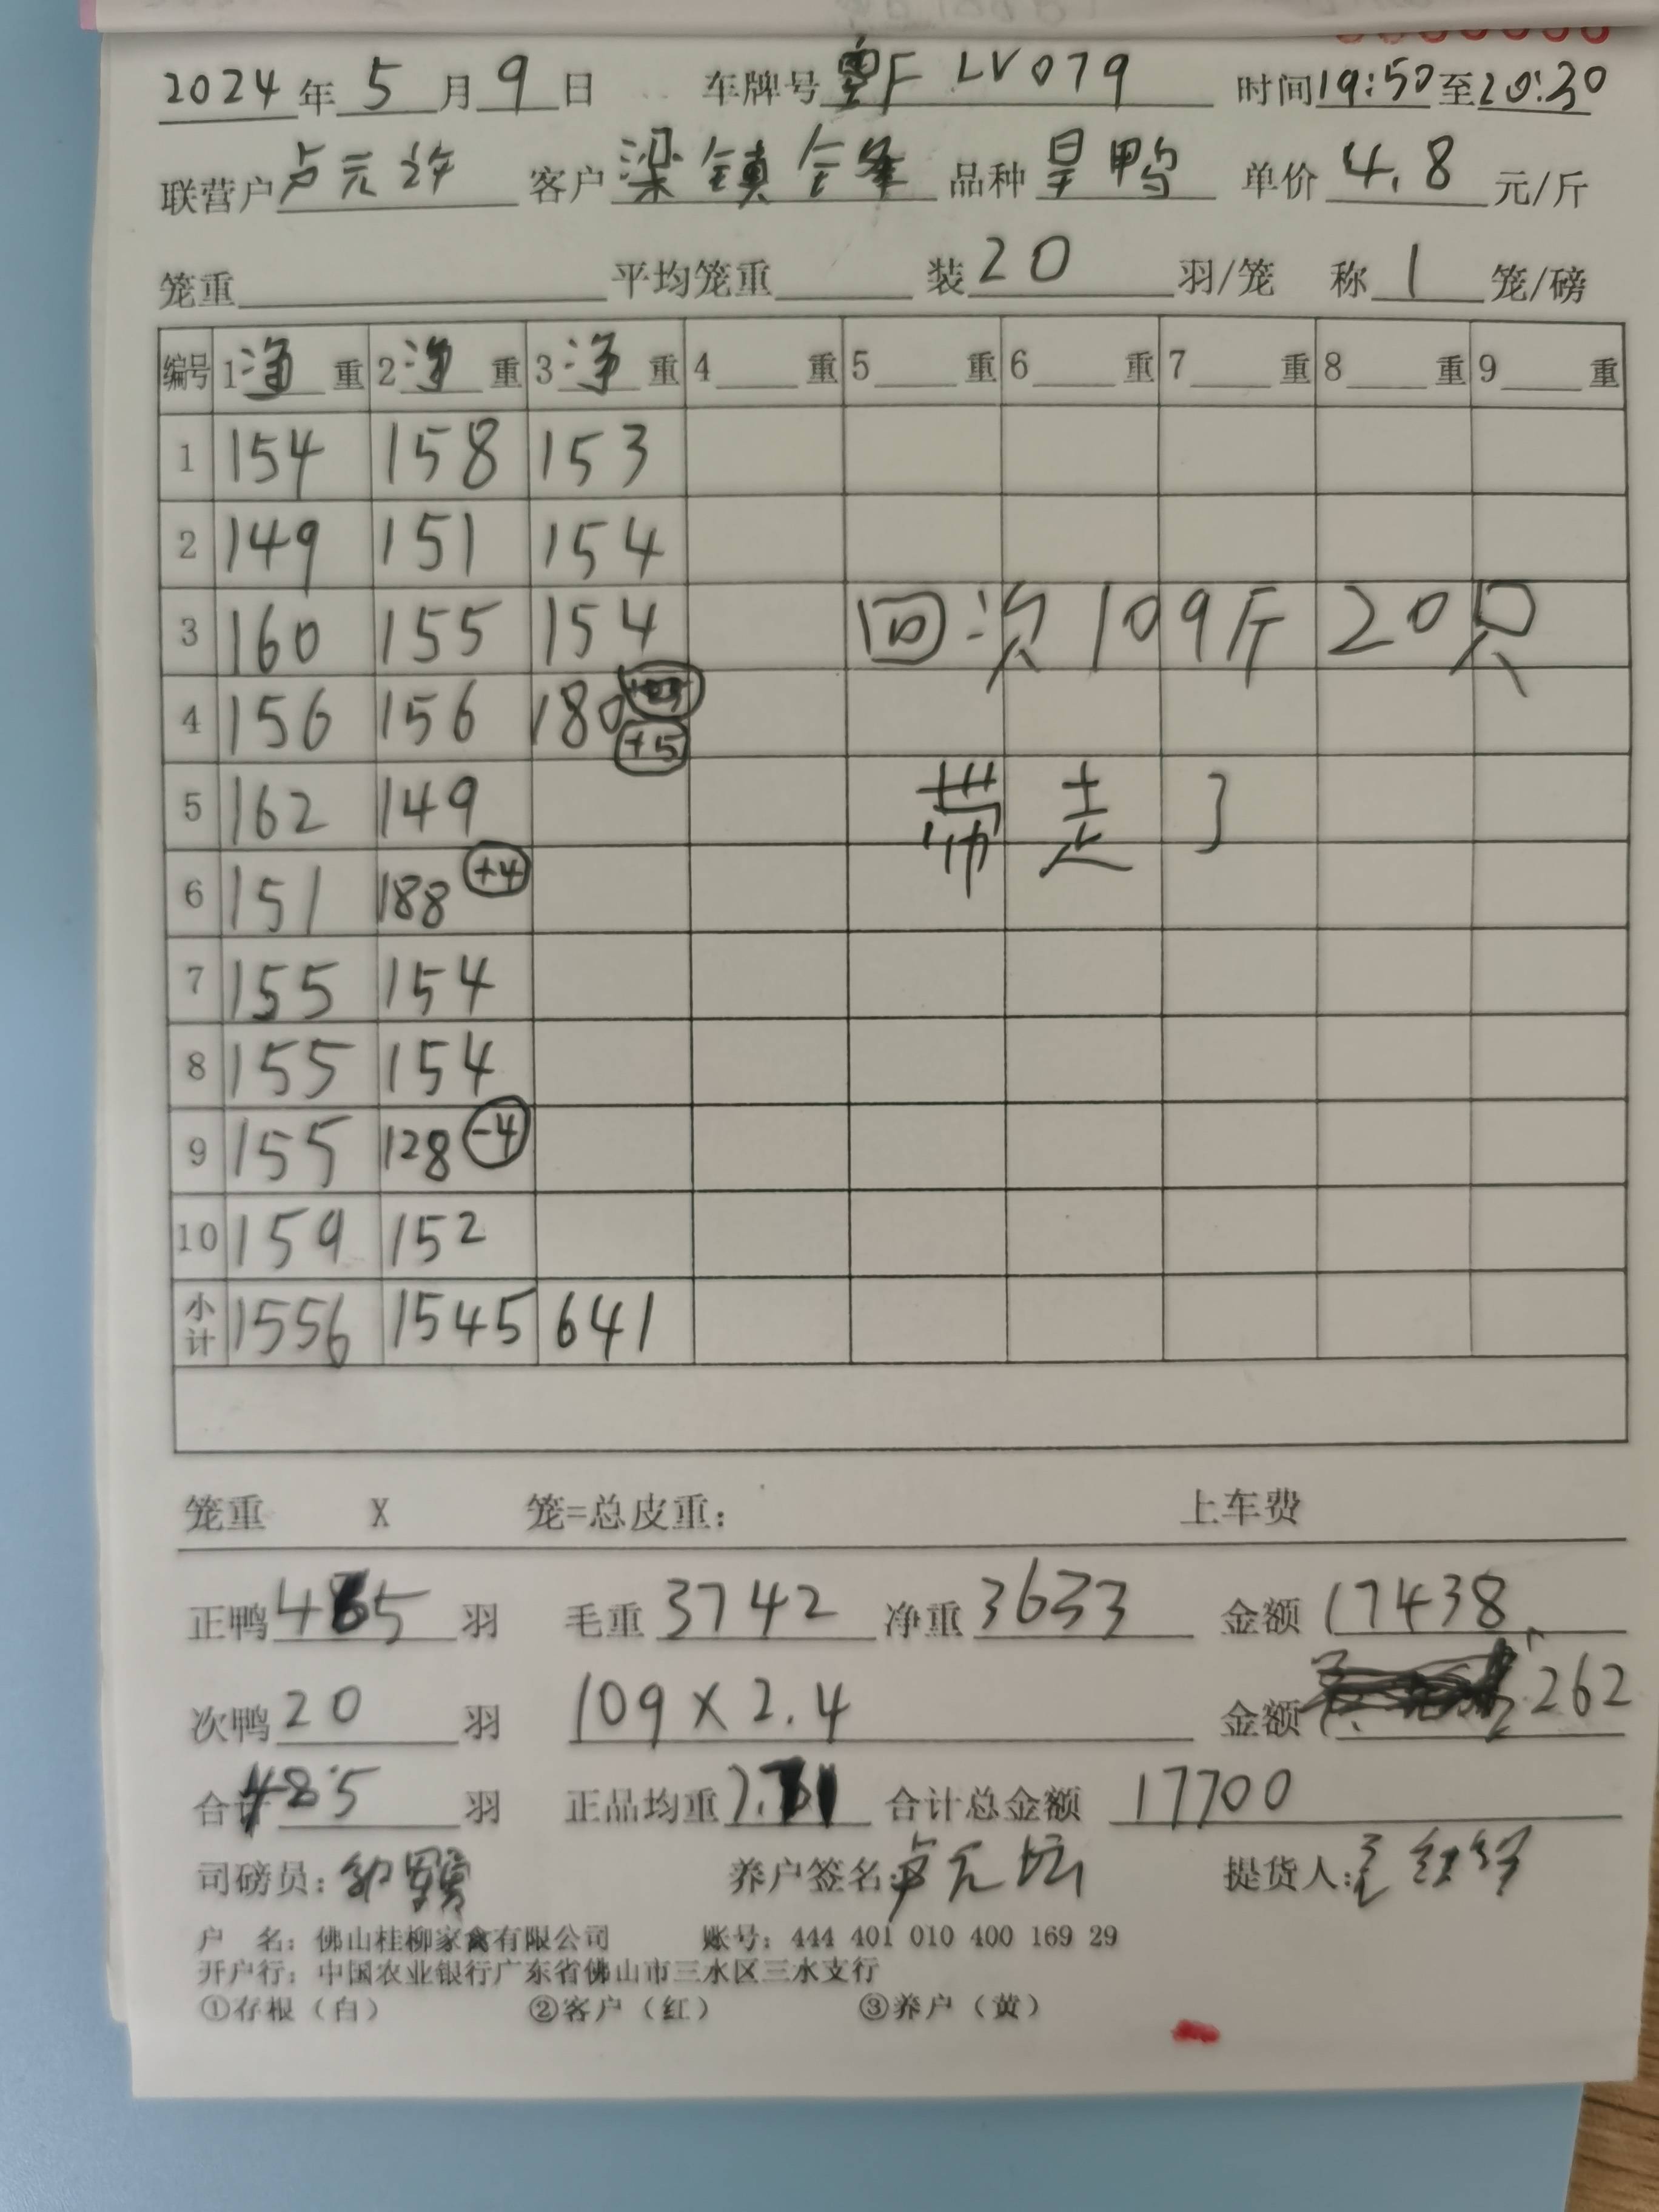 2024年5月9日 车牌号粤F LV079 时间19:50至20:30
联营户卢元 客户梁镇全锋 品种呈鸭 单价4.8元/斤
笼重 平均笼重 装20羽/笼 称1笼/磅
编号 1净重 2净重 3净重 4重 5重 6重 7重 8重 9重
1 154 158 153
2 149 151 154
3 160 155 154 回次109斤20只
4 156 156 180 +5
5 162 149 带走了
6 151 188 +4
7 155 154
8 155 154
9 155 128 -4
10 159 152
小计 1556 1545 641
笼重 X 笼=总皮重: 上车费
正鸭465羽 毛重3742 净重3633 金额17438
次鸭20羽 109×2.4 金额262
合计485羽 正品均重 合计总金额 17700
司磅员: 养户签名:卢元坛 提货人:
户 名: 佛山桂柳家禽有限公司 账号: 444 401 010 400 169 29
开户行: 中国农业银行广东省佛山市三水区三水支行
①存根(白) ②客户(红) ③养户(黄)